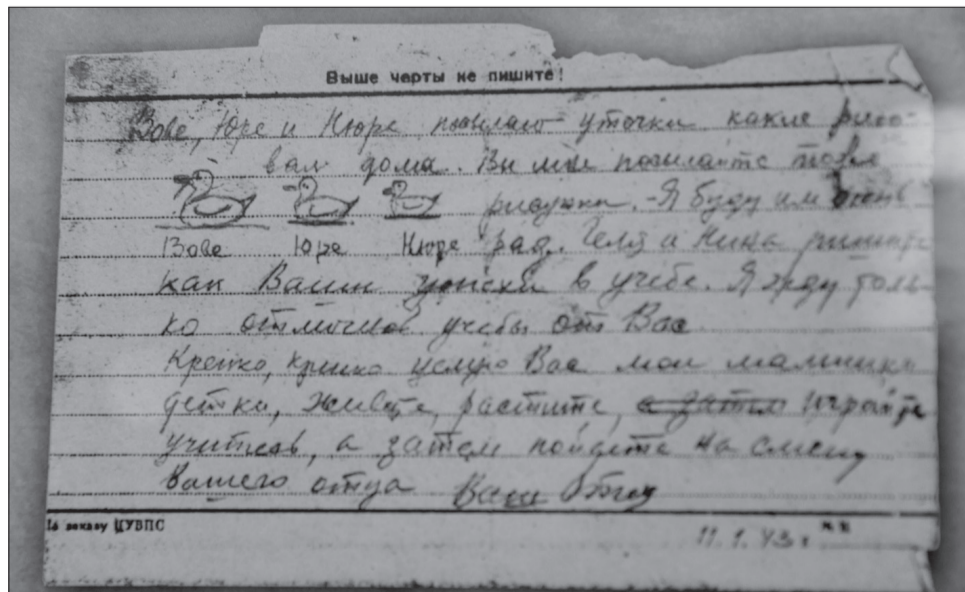 Выше черты не пишите!
Вове, Юре и Нюре посылаю уточки какие рисо-
вал дома. Вы мне посылайте тоже
рисунки. - Я буду им очень
Вове Юре Нюре рад. Геля и Нина пишите
как Ваши успехи в учебе. Я жду толь-
ко отличной учебы от Вас
Крепко, крепко целую Вас мои маленькие
детки, живите, растите, а затем играйте
учитесь, а затем пойдете на смену
вашего отца Ваш Отец
По заказу ЦУВПС
11.1.43 г